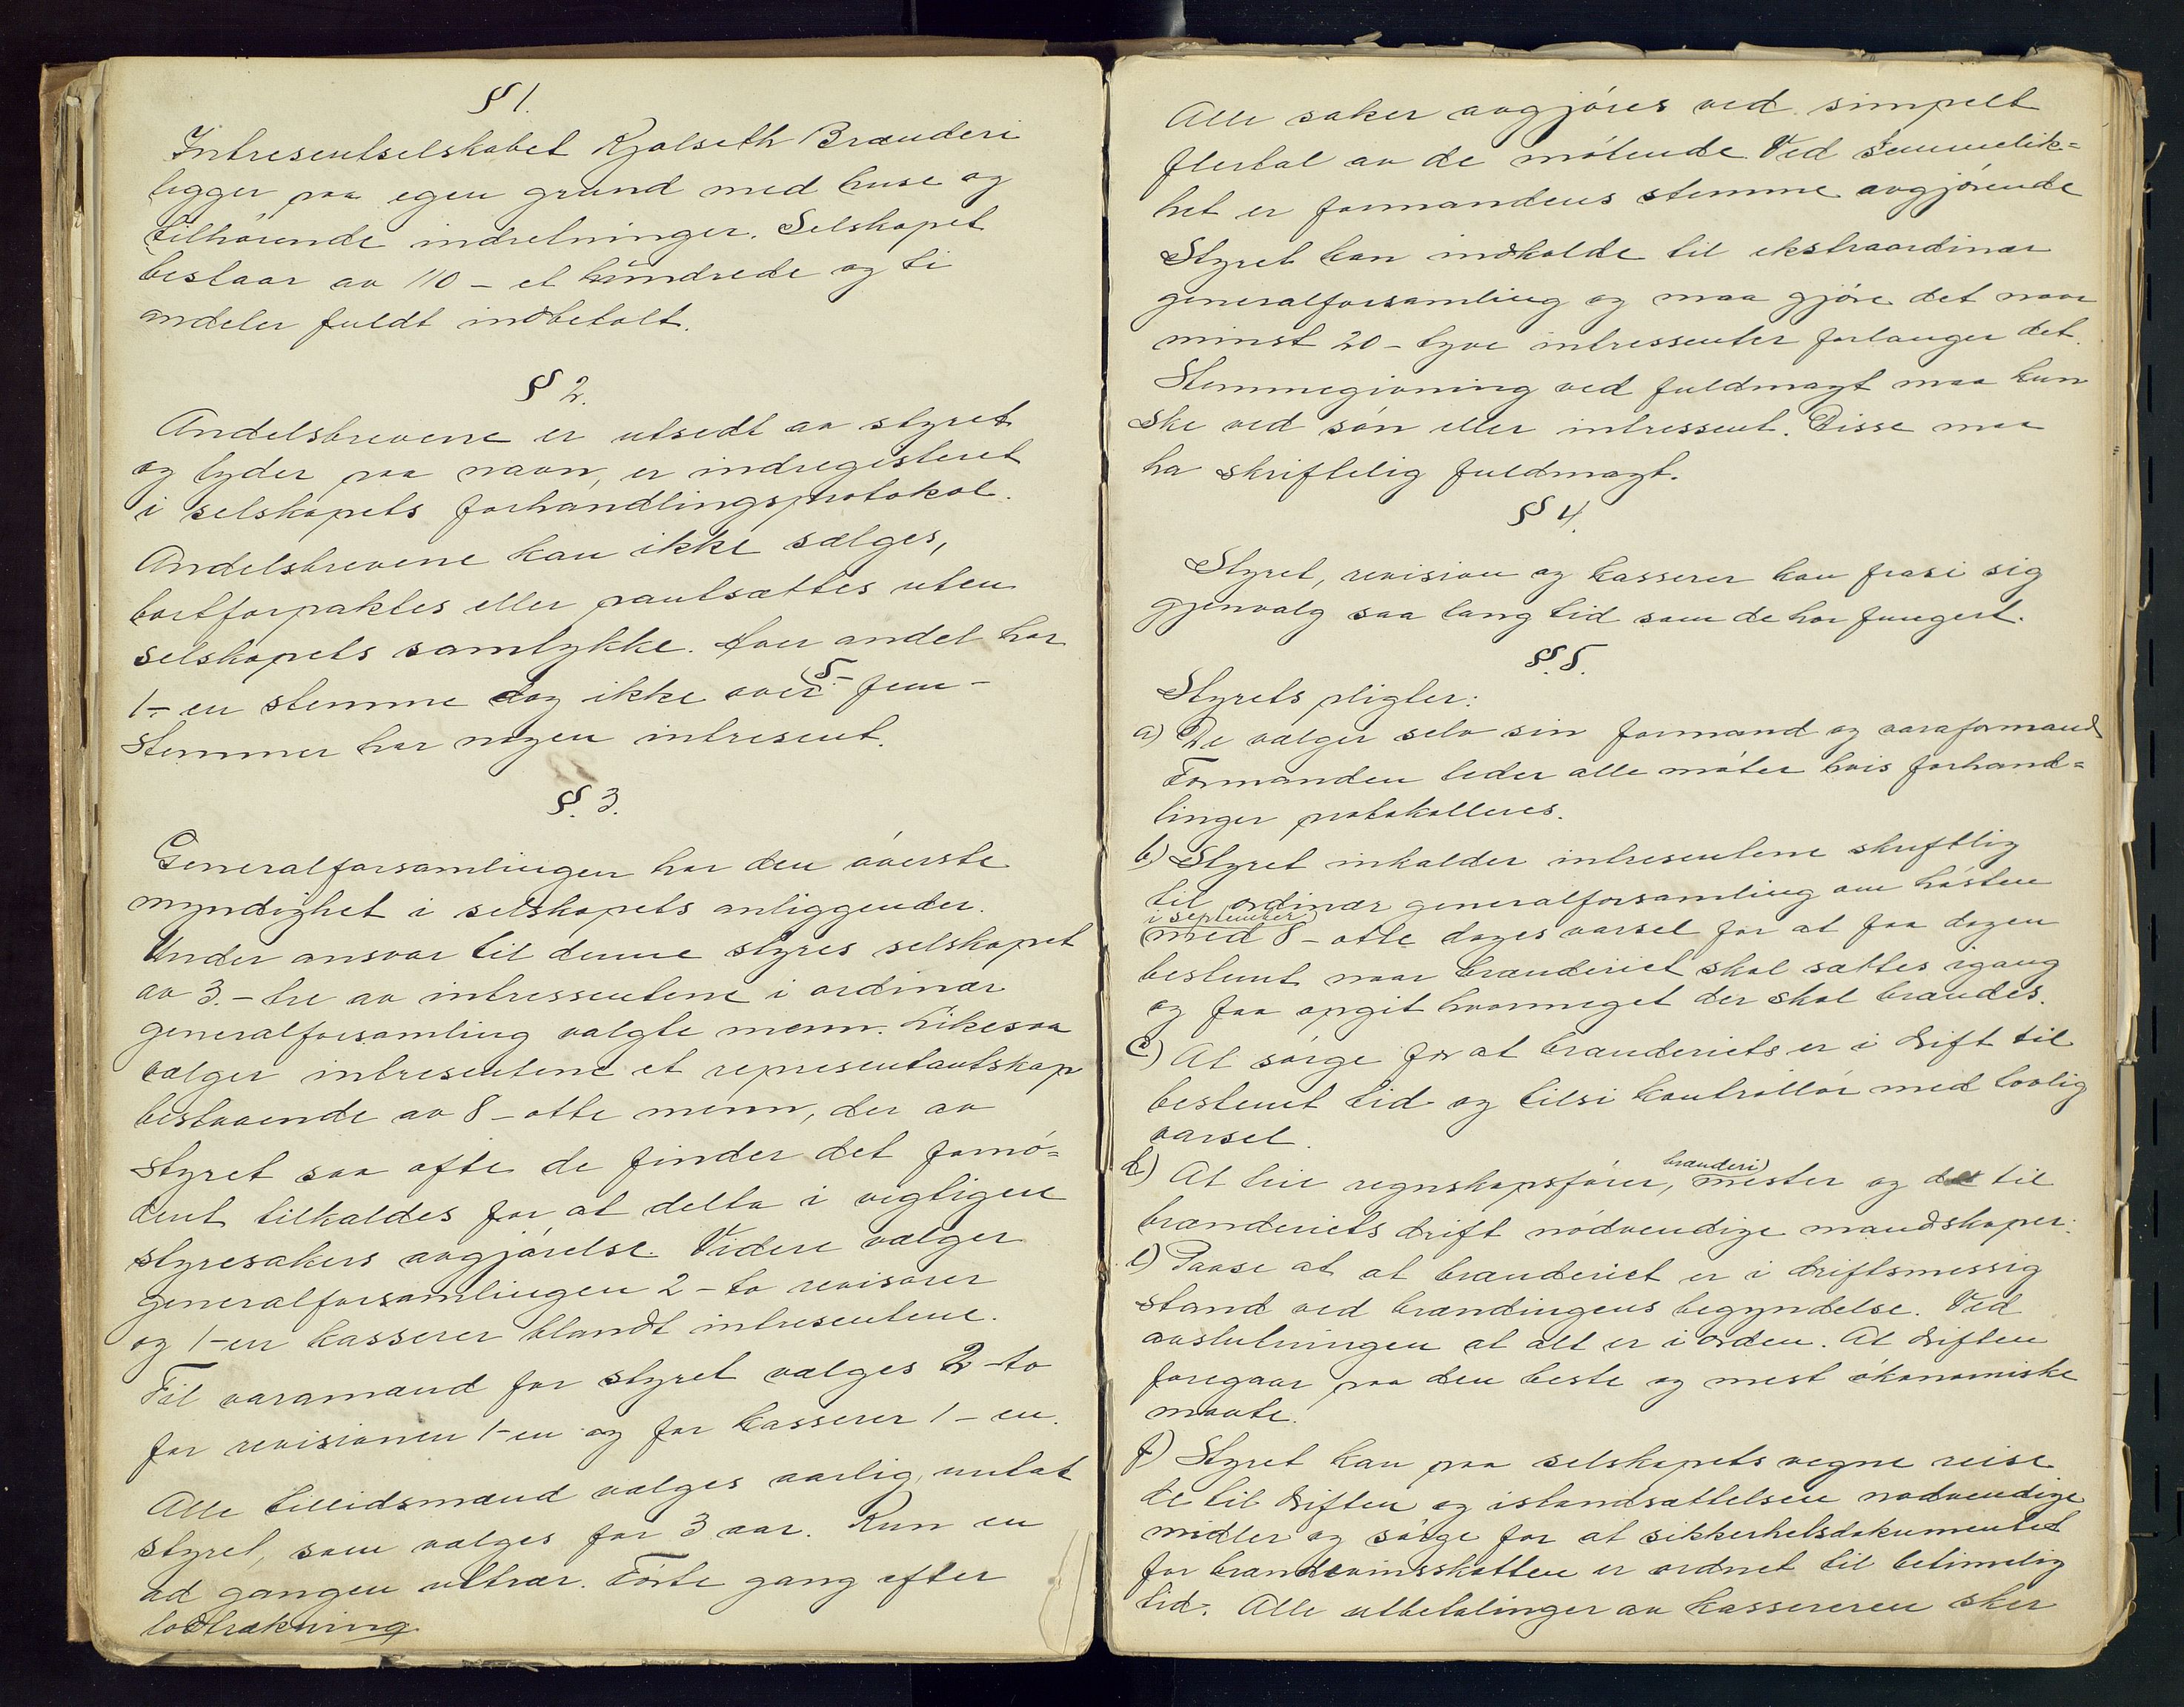 § 1.
Intresentselskabet Kjølseth Brænderi
ligger paa egen grund med huse og
tilhørende indretninger. Selskapet
bestaar av 110 - et hundrede og ti
andeler fuldt indbetalt.
§ 2.
Andelsbrevene er utsedt av styret
og lyder paa navn, er indregisteret
i selskapets forhandlingsprotokol.
Andelsbrevene kan ikke sælges,
bortforpaktes eller pantsættes uten
selskapets samtykke. Hver andel har
1- en stemme dog ikke over 5- fem-
stemmer har nogen intresent.
§. 3.
Generalforsamlingen har den øverste
myndighet i selskapets anliggender.
Under ansvar til denne styres selskapet
av 3.- tre av intressentene i ordinær
generalforsamling valgte menn. Likesaa
vælger intresentene et representantskap
bestaaende av 8 - otte menn, der av
styret saa ofte de finder det fornø=
dent tilkaldes for at delta i vigtigere
styresakers avgjørelse. Videre vælger
generalforsamlingen 2 - to revisorer
og 1-en kasserer blandt intresentene.
Til varamænd for styret vælges 2-to
for revisionen 1-en og for kasserer 1 - en.
Alle tillidsmænd vælges aarlig, untat
styret, som vælges for 3 aar. Kun en
ad gangen uttrær. Førte gang efter
lodtrækning.
Alle saker avgjøres ved simpelt
flertal av de møtende. Ved stemmelik=
het er formandens stemme avgjørende
Styret kan indkalde til ekstraordinær
generalforsamling og maa gjøre det naar
minst 20 - tyve intressenter forlanger det.
Stemmegivning ved fuldmagt maa kun
ske ved søn eller intressent. Disse maa
ha skriftelig fuldmagt.
§ 4.
Styret, revision og kasserer kan frasi sig
gjenvalg saa lang tid som de har fungert.
§. 5.
Styrets pligter:
a) De vælger selv sin formand og varaformand
Formanden leder alle møter hvis forhand=
linger protokolleres.
b) Styret inkalder intresentene skriftlig
til ordinær generalforsamling om høsten
i september
med 8 - otte dages varsel for at faa dagen
bestemt naar brænderiet skal sættes igang
og faa opgit hvormeget der skal brændes.
c) At sørge for at brænderiets er i drift til
bestemt tid og tilsi kontrollør med lovlig
varsel.
brænderi
d) At leie regnskapsfører, mester og det til
brænderiets drift nødvendige mandskaper.
e) Paase at at brænderiet er i driftsmessig
stand ved brændingens begyndelse. Ved
avslutningen at alt er i orden. At driften
foregaar paa den beste og mest økonomiske
maate.
f) Styret kan paa selskapets vegne reise
de til driften og istandsættelsen nødvendige
midler og sørge for at sikkerhetsdokumentet
for brændevinsskatten er ordnet til betimelig
tid. Alle utbetalinger av kassereren sker